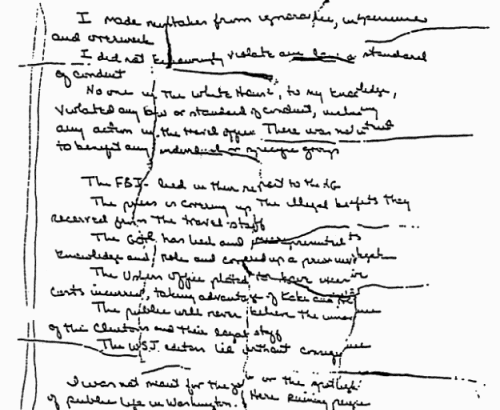 I made mistakes from ignorance, inexperience
and overwork
I did not knowingly violate any law or standard
of conduct
No one in The White House, to my knowledge,
violated any law or standard of conduct, including
any action in the travel office. There was no intent
to benefit any individual or specific group
The FBI lied in their report to the AG
The press is covering up the illegal benefits they
received from the travel staff
The GOP has lied and misrepresented its
knowledge and role and covered up a prior investigation
The Ushers Office plotted to have
costs incurred, taking advantage of Kaki and
The public will never believe the innocence
of the Clintons and their loyal staff
The WSJ editors lie without consequence
I was not meant for the job or the spotlight
of public life in Washington. Here ruining people